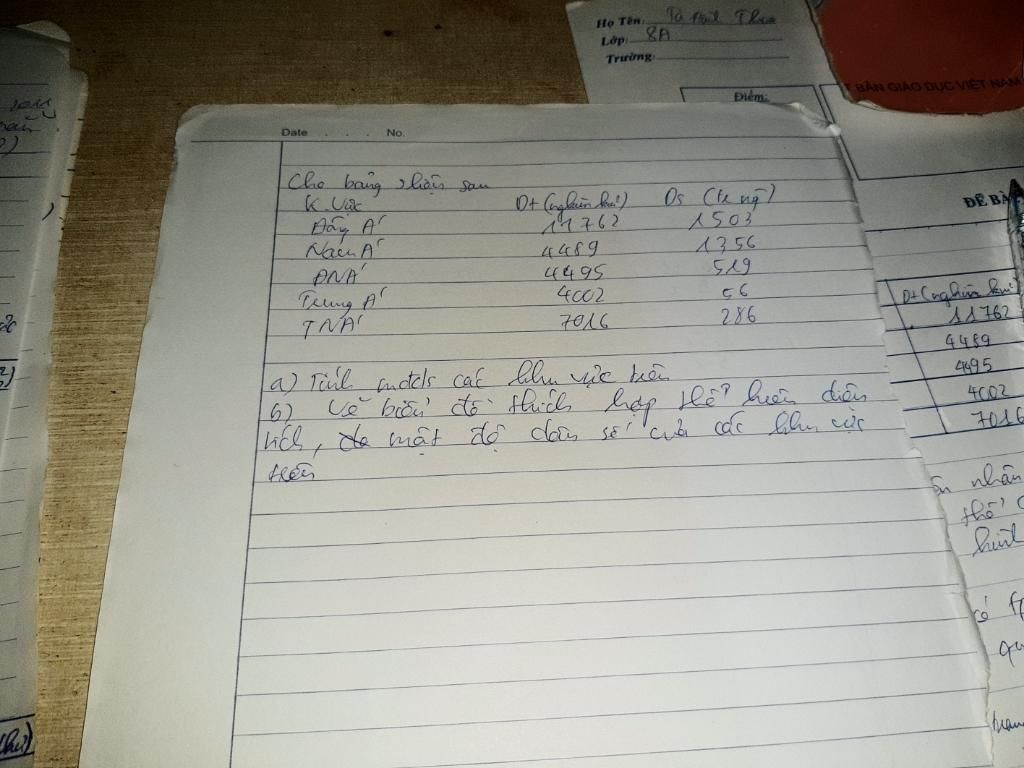 Họ Tên:
Lớp: 8A
Trường:
T BẢN GIÁO DỤC VIỆT NAM
Điểm:
Date . . . No.
Cho bảng số liệu sau
K Vực D+ (nghìn km²) Ds (tr ng)
Đông Á 11762 1503
Nam Á 4489 1356
ĐNÁ 4495 519
Trung Á 4002 56
TNÁ 7016 286
a) Tính mđds các khu vực trên
b) Vẽ biểu đồ thích hợp thể hiện diện
tích, mật độ dân số của các khu vực
trên
ĐỀ BÀ
D+ (nghìn km²
11762
4489
4495
4002
7016
nhân
thổ